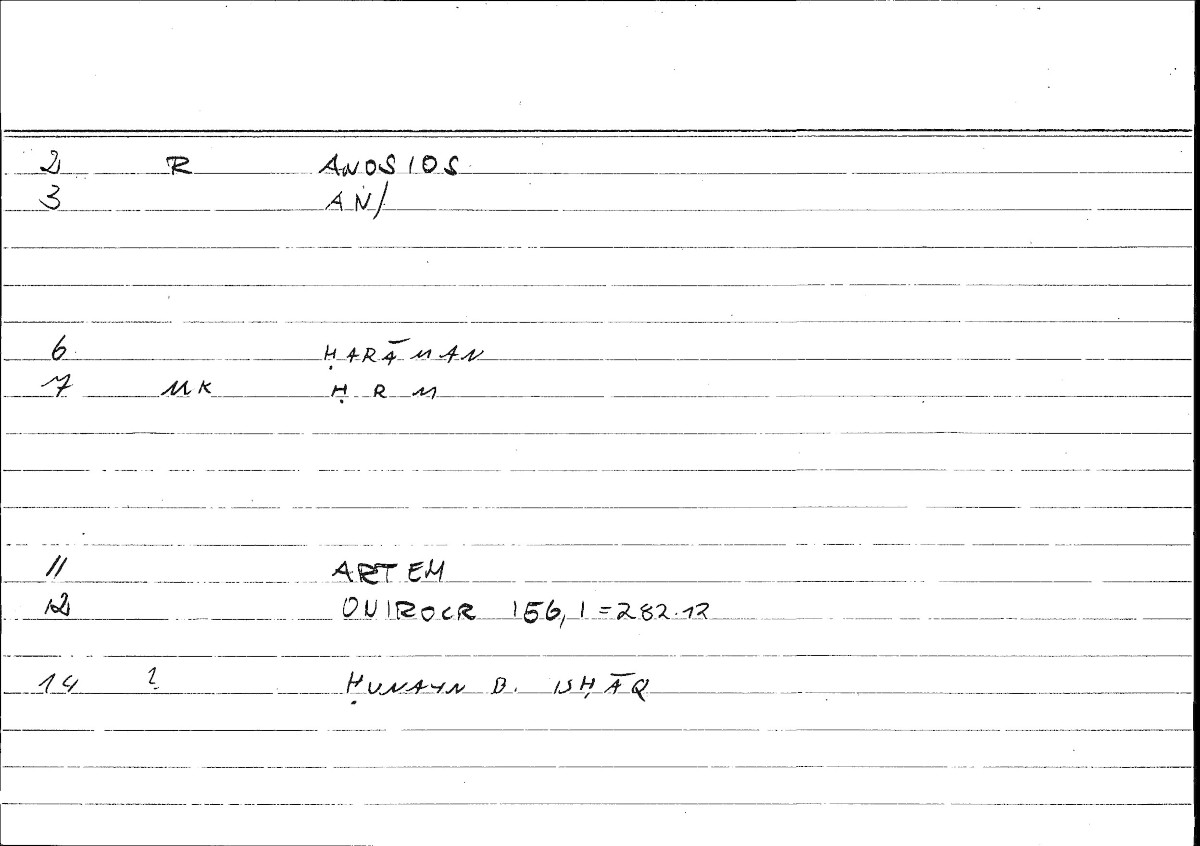 2 R ANOSIOS
3 AN/
6 ḤARĀMAN
7 MK Ḥ R M
11 ARTEM
12 ONIROCR 156,1=282.12
14 ? ḤUNAYN B. ISḤĀQ